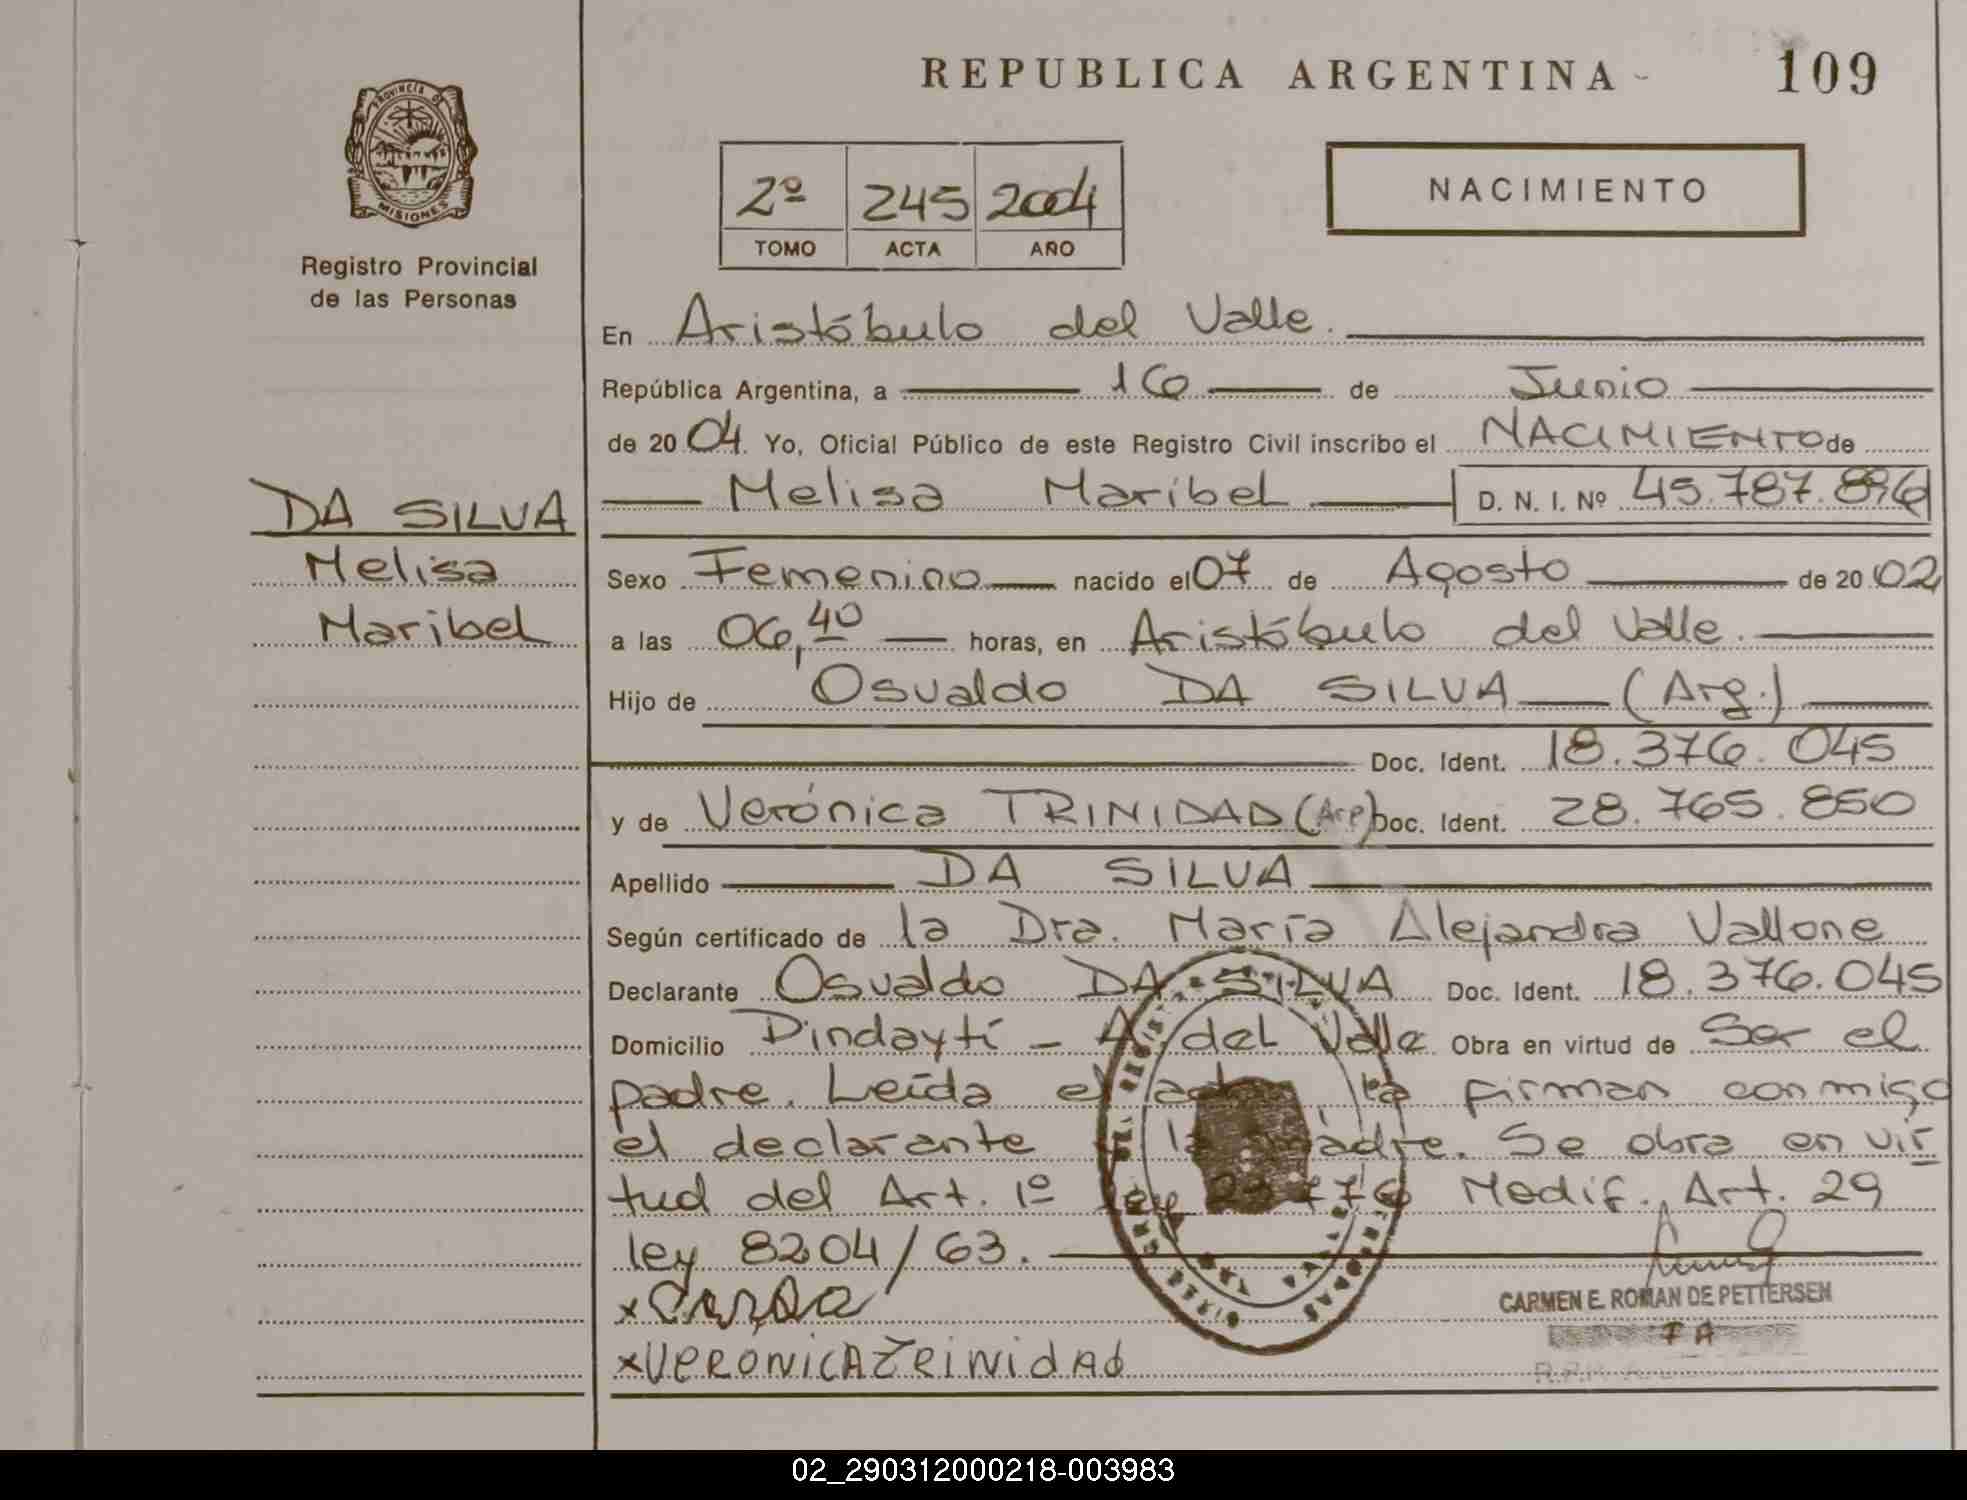 REPUBLICA ARGENTINA 109
PROVINCIA DE
MISIONES
Registro Provincial
de las Personas
2º 245 2004
TOMO ACTA AÑO
NACIMIENTO
En Aristóbulo del Valle.
República Argentina, a 16 de Junio
de 2004. Yo, Oficial Público de este Registro Civil inscribo el NACIMIENTO de
DA SILVA
Melisa
Maribel
Melisa Maribel D. N. I. Nº 45.787.896
Sexo Femenino nacido el 07 de Agosto de 2002
a las 06,40 horas, en Aristóbulo del Valle.
Hijo de Osvaldo DA SILVA (Arg.)
Doc. Ident. 18.376.045
y de Verónica TRINIDAD (Arg) Doc. Ident. 28.765.850
Apellido DA SILVA
Según certificado de la Dra. María Alejandra Vallone
Declarante Osvaldo DA SILVA Doc. Ident. 18.376.045
Domicilio Pindaytí - A. del Valle Obra en virtud de Ser el
padre. Leída el acta, la firman conmigo
el declarante y la madre. Se obra en vir
tud del Art. 1º ley 23776 Modif. Art. 29
ley 8204/63.
x
xVERONICA TRINIDAD
CARMEN E. ROMAN DE PETTERSEN
02_290312000218-003983